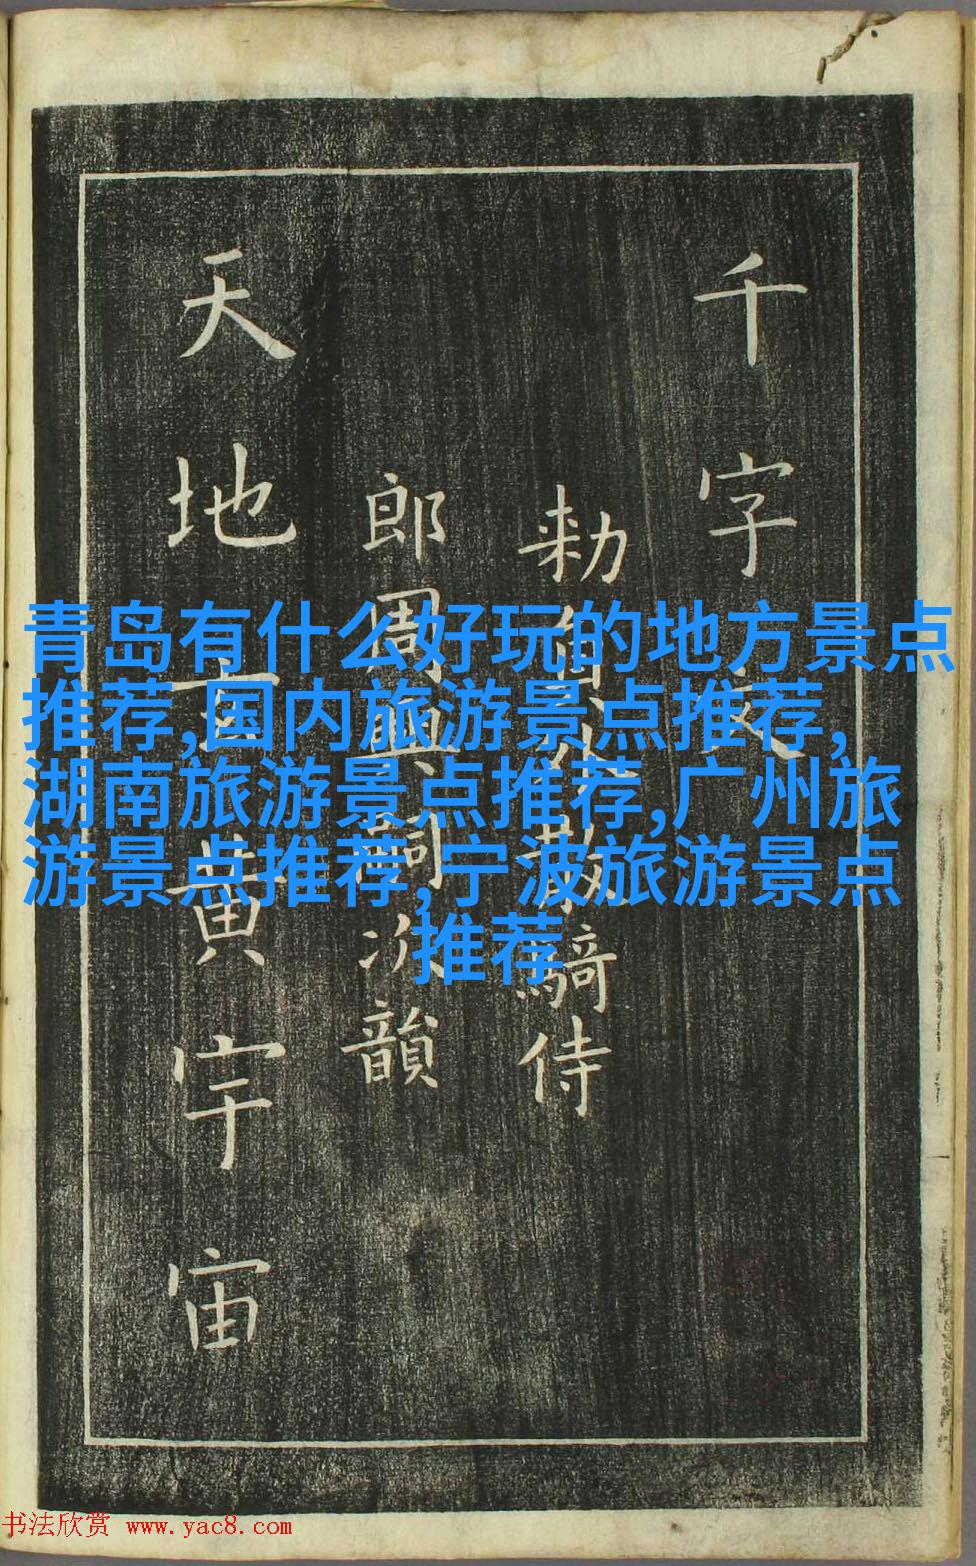 千字文
勑員外散騎侍
郎周興嗣次韻
天地玄黃宇宙
青岛有什么好玩的地方景点
推荐,国内旅游景点推荐,
湖南旅游景点推荐,广州旅
游景点推荐,宁波旅游景点
推荐
书法欣赏 www.yac8.com